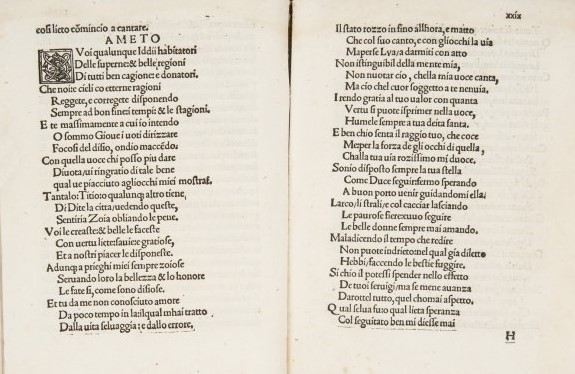 cosi lieto cōmincio a cantare.
AMETO
O Voi qualunque Iddii habitatori
Delle superne: & belle regioni
Di tutti ben cagione: e donatori.
Che noi: e cieli co etterne ragioni
Reggete, e corregete disponendo
Sempre ad bon fineˑi tempi: & le stagioni.
E te massimamente a cui io intendo
O sommo Gioue i uoti dirizzare
Focosi del disio, ondio maccēdo.
Con quella uoce chi posso piu dare
Diuota, ui ringratio di tale bene
qual ue piacciuto agliocchi miei mostrar.
Tantalo: Titio: o qualunq altro tiene,
Di Dite la citta, uedendo queste,
Sentiria Zoia obliando le pene.
Voi le creaste: & belle le faceste
Con uertu liete: sauie: e gratiose,
Et a nostri piacer le disponeste.
Adunq a prieghi miei sempre zoiose
Seruando loro la bellezza & lo honore
Le fate si, come sono disiose.
Et tu da me non conosciuto amore
Da poco tempo in la: ilqual mhai tratto
Dalla uita seluaggia: e dallo errore,
xxix
Il stato rozzo in fino allhora, e matto
Che col suo canto, e con gliocchi la uia
Maperse Lya / a darmiti con atto
Non istinguibil della mente mia,
Non nuotar cio, chella mia uoce canta,
Ma cio chel cuor soggetto a te nenuia.
I rendo gratia al tuo ualor con quanta
Vertu si puote isprimer nella uoce,
Humele sempre a tua deita santa.
E ben chio senta il raggio tuo, che coce
Me: per la forza de gli occhi di quella,
Challa tua uia rozissimo mi duoce.
Sonio disposto sempre la tua stella
Come Duce seguir: fermo sperando
A buon porto uenir guidandomi ella:
Larco, li strali, e col cacciar lasciando
Le paurose fiere: xuuo seguire
Le belle donne sempre mai amando.
Maladicendo il tempo che redire
Non puote indrieto: nel qual gia diletto
Hebbi, faccendo le bestie fuggire.
Si chio il potessi spender nello effetto
De tuoi seruigi / ma se mene auanza
Darottel tutto, quel chomai aspetto.
Qual selua fu: xo qual lieta speranza
Col seguitato ben mi diesse mai
H